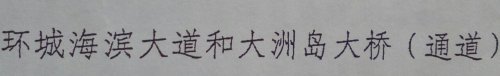 环城海滨大道和大洲岛大桥（通道）